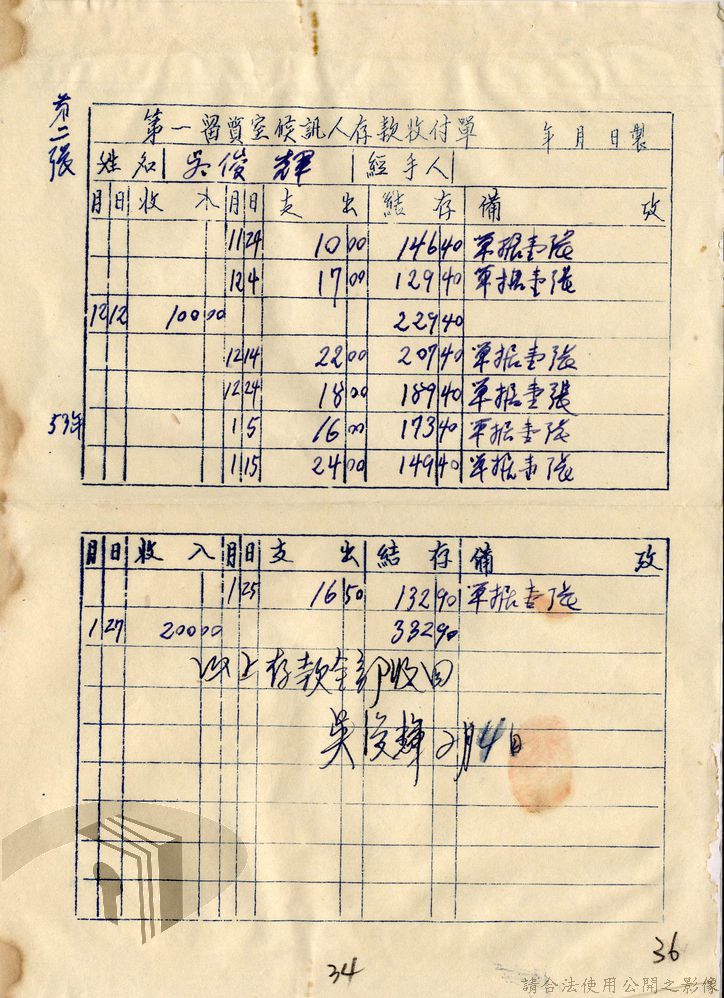 第二張
第一留質室候訊人存款收付單 年月日製
姓名 吳俊輝 經手人
月 日 收入 月 日 支出 結存 備攷
11 24 10 00 146 40 單据壹張
12 4 17 00 129 40 單据壹張
12 12 100 00 229 40
12 14 22 00 207 40 單据壹張
12 24 18 00 189 40 單据壹張
53年 1 5 16 00 173 40 單据壹張
1 15 24 00 149 40 單据壹張
月 日 收入 月 日 支出 結存 備攷
1 25 16 50 132 90 單据壹張
1 27 200 00 332 90
以上存款全部收回
吳俊輝 2月4日
34
36
請合法使用公開之影像